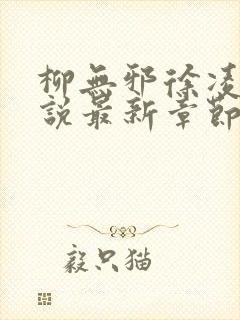 柳無邪徐凌
說最新章節
毅只猫